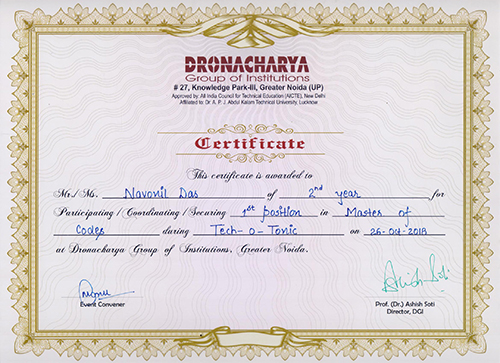 DRONACHARYA
Group of Institutions
# 27, Knowledge Park-III, Greater Noida (UP)
Approved by: All India Council for Technical Education (AICTE), New Delhi
Affiliated to: Dr. A. P. J. Abdul Kalam Technical University, Lucknow
Certificate
This certificate is awarded to
Mr./Ms. Navonil Das of 2nd year for
Participating / Coordinating / Securing 1st position in Master of
Codes during Tech-o-Tonic on 26-04-2018
at Dronacharya Group of Institutions, Greater Noida.
Event Convener
Ashish Soti
Prof. (Dr.) Ashish Soti
Director, DGI